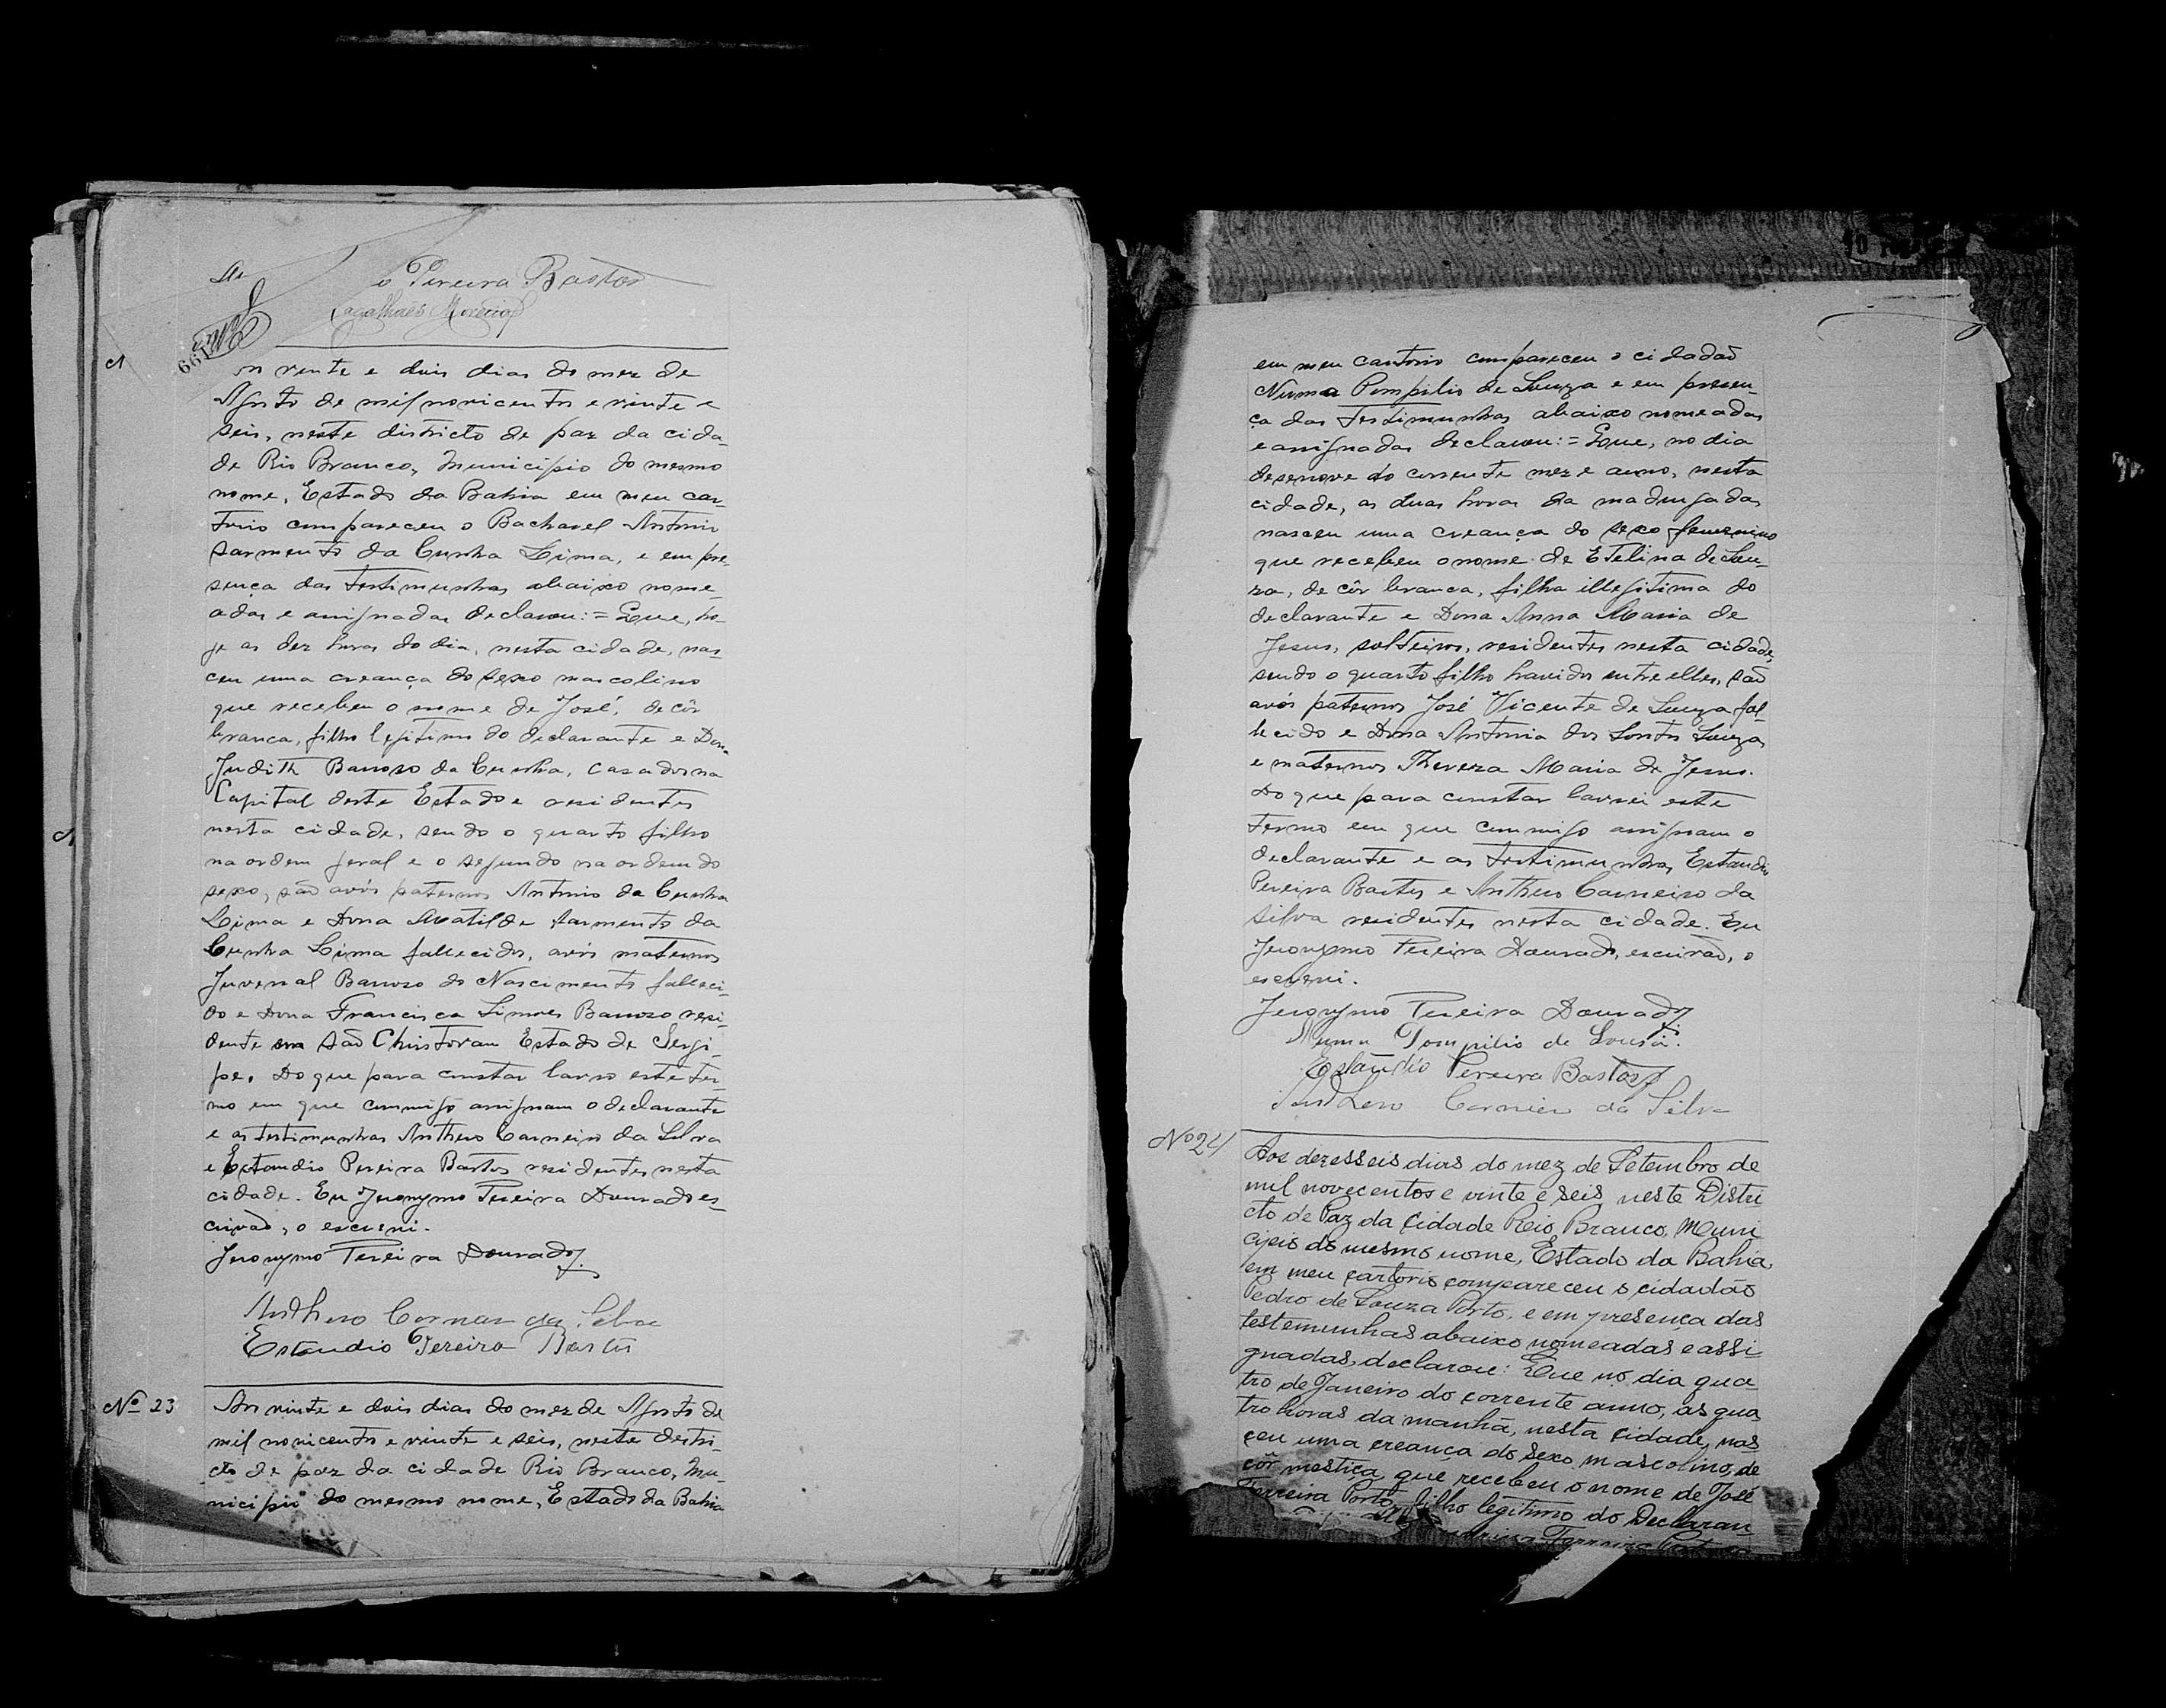 o Pereira Bastos
Magalhães Moreira
199
os vinte e dois dias do mez de
Agosto de mil novicentos e vinte e
seis, neste districto de paz da cida-
de Rio Branco, Municipio do mesmo
nome, Estado da Bahia em meu car-
torio compareceu o Bacharel Antonio
Sarmento da Cunha Lima, e em pre-
sença das testimunhas abaixo nome-
adas e assignadas declarou:= Que, ho-
je as dez horas do dia, nesta cidade, nas-
ceu uma creança do sexo mascolino
que recebeu o nome de José, de côr
branca, filho legitimo do declarante e Dona
Judith Barrozo da Cunha, casados na
Capital deste Estado e residentes
nesta cidade, sendo o quarto filho
na ordem geral e o segundo na ordem do
sexo, são avós paternos Antonio da Cunha
Lima e Dona Matilde Sarmento da
Cunha Lima fallecidos, avós maternos
Juvenal Barrozo do Nascimento falleci-
do e Dona Francisca Simões Barrozo resi-
dente em São Christovam Estado de Sergi-
pe. Do que para constar lavro este ter-
mo em que commigo assignam o declarante
e as testimunhas Anthero Carneiro da Silva
e Estaudio Pereira Bastos residentes nesta
cidade. Eu Jeronymo Pereira Dourado es-
crivão, o escrevi.
Jeronymo Pereira Dourado
Anthero Carneiro da Silva
Estaudio Pereira Bastos
Nº 23
Aos vinte e dois dias do mez de Agosto de
mil novicentos e vinte e seis, neste distri-
cto de paz da cidade Rio Branco, Mu-
nicipio do mesmo nome, Estado da Bahia
em meu cartorio compareceu o cidadão
Numa Pompilio de Souza e em presen-
ça das testimunhas abaixo nomeadas
e assignadas declarou:= Que, no dia
desenove do corrente mez e anno, nesta
cidade, as duas horas da madrugada
nasceu uma creança do sexo femenino
que recebeu o nome de Etelina de Sou-
za, de côr branca, filha illegitima do
declarante e Dona Anna Maria de
Jesus, solteiros, residentes nesta cidade,
sendo o quarto filho havidos entre elles, são
avós paternos José Vicente de Souza fal-
lecido e Dona Antonia dos Santos Souza
e maternos Thereza Maria de Jesus.
Do que para constar lavrei este
termo em que commigo assignam o
declarante e as testimunhas Estaudio
Pereira Bastos e Anthero Carneiro da
Silva residentes nesta cidade. Eu
Jeronymo Pereira Dourado, escrivão, o
escrevi.
Jeronymo Pereira Dourado
Numa Pompilio de Sousa.
Estaudio Pereira Bastos
Anthero Carneiro da Silva
Nº 24
Aos dezesseis dias do mez de Setembro de
mil novecentos e vinte e seis neste Distri
cto de Paz da Cidade Reio Branco, Muni
cipio do mesmo nome, Estado da Bahia,
em meu cartorio compareceu o cidadão
Pedro de Souza Porto, e em presença das
testemunhas abaixo nomeadas e assi-
gnadas, declarou: Que no dia qua
tro de Janeiro do corrente anno, as qua
tro horas da manhã, nesta cidade, nas
ceu uma creança do sexo mascolino, de
côr mestiça, que recebeu o nome de José
Ferreira Porto, filho legitimo do Declaran
Ferreira